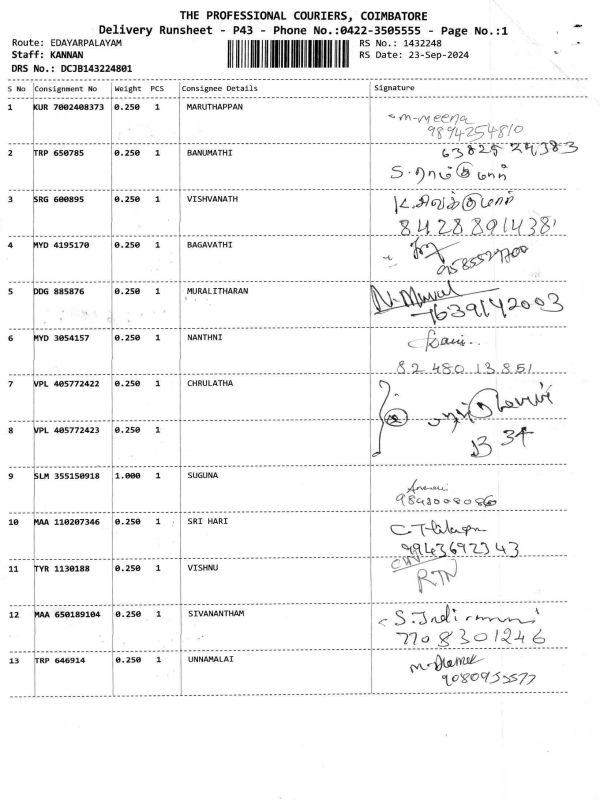 THE PROFESSIONAL COURIERS, COIMBATORE
Delivery Runsheet - P43 - Phone No.:0422-3505555 - Page No.:1
Route: EDAYARPALAYAM RS No.: 1432248
Staff: KANNAN RS Date: 23-Sep-2024
DRS No.: DCJB143224801
S No Consignment No Weight PCS Consignee Details Signature
1 KUR 7002408373 0.250 1 MARUTHAPPAN
m-meena
9894254810
2 TRP 650785 0.250 1 BANUMATHI
63825 24383
S. ராம்குமார்
3 SRG 600895 0.250 1 VISHVANATH
K. சிவக்குமார்
8428891438
4 MYD 4195170 0.250 1 BAGAVATHI
5 DDG 885876 0.250 1 MURALITHARAN
N. Mural
7639142003
6 MYD 3054157 0.250 1 NANTHNI
82 480 13 851
7 VPL 405772422 0.250 1 CHRULATHA
8 VPL 405772423 0.250 1
13 34
9 SLM 355150918 1.000 1 SUGUNA
10 MAA 110207346 0.250 1 SRI HARI
9943692343
11 TYR 1130188 0.250 1 VISHNU
RTN
12 MAA 650189104 0.250 1 SIVANANTHAM
7708301246
13 TRP 646914 0.250 1 UNNAMALAI
9080955577